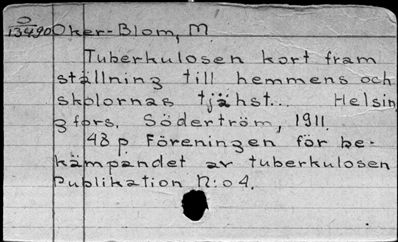 O
13490 Oker-Blom, M.
Tuberkulosen kort fram
ställning till hemmens och
skolornas tjähst... Helsin
gfors. Söderström, 1911.
48 p Föreningen för be-
kämpandet av tuberkulosen
Publikation N:o 4.